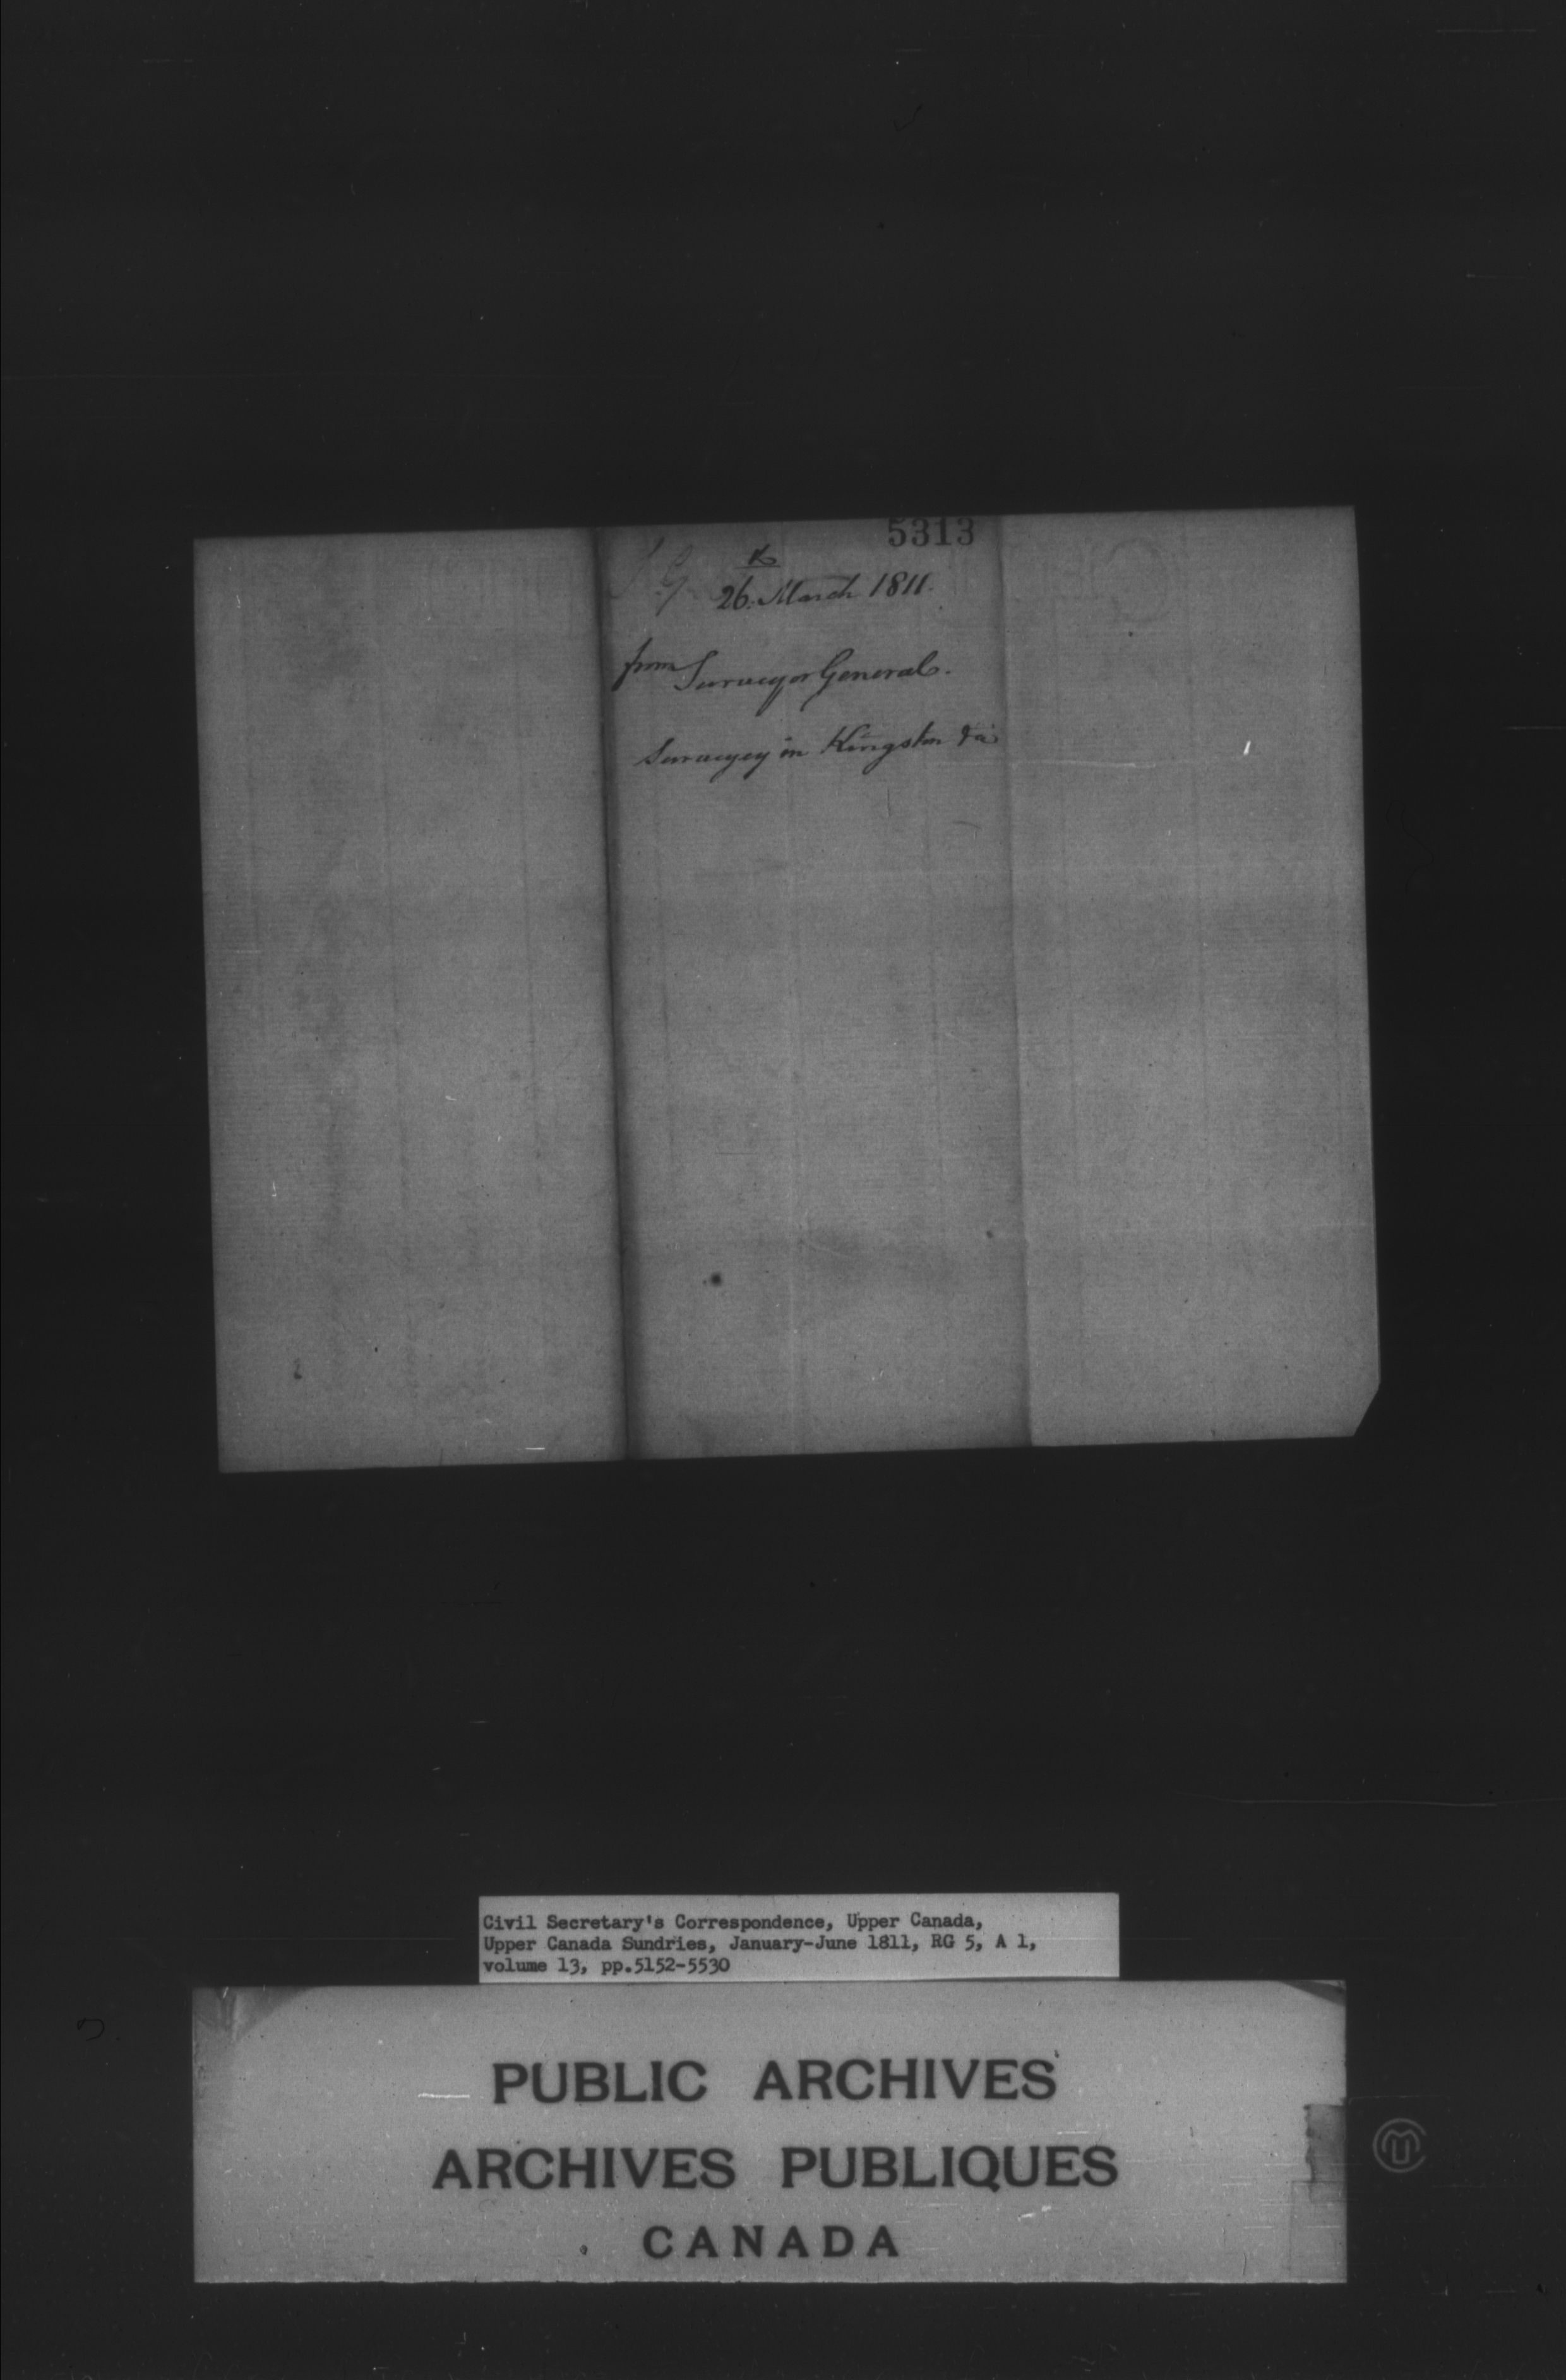 5313
S. G.
26. March 1811.
from Surveyor General.
Survey in Kingston
Civil Secretary's Correspondence, Upper Canada,
Upper Canada Sundries, January-June 1811, RG 5, A 1,
volume 13, pp.5152-5530
PUBLIC ARCHIVES
ARCHIVES PUBLIQUES
CANADA